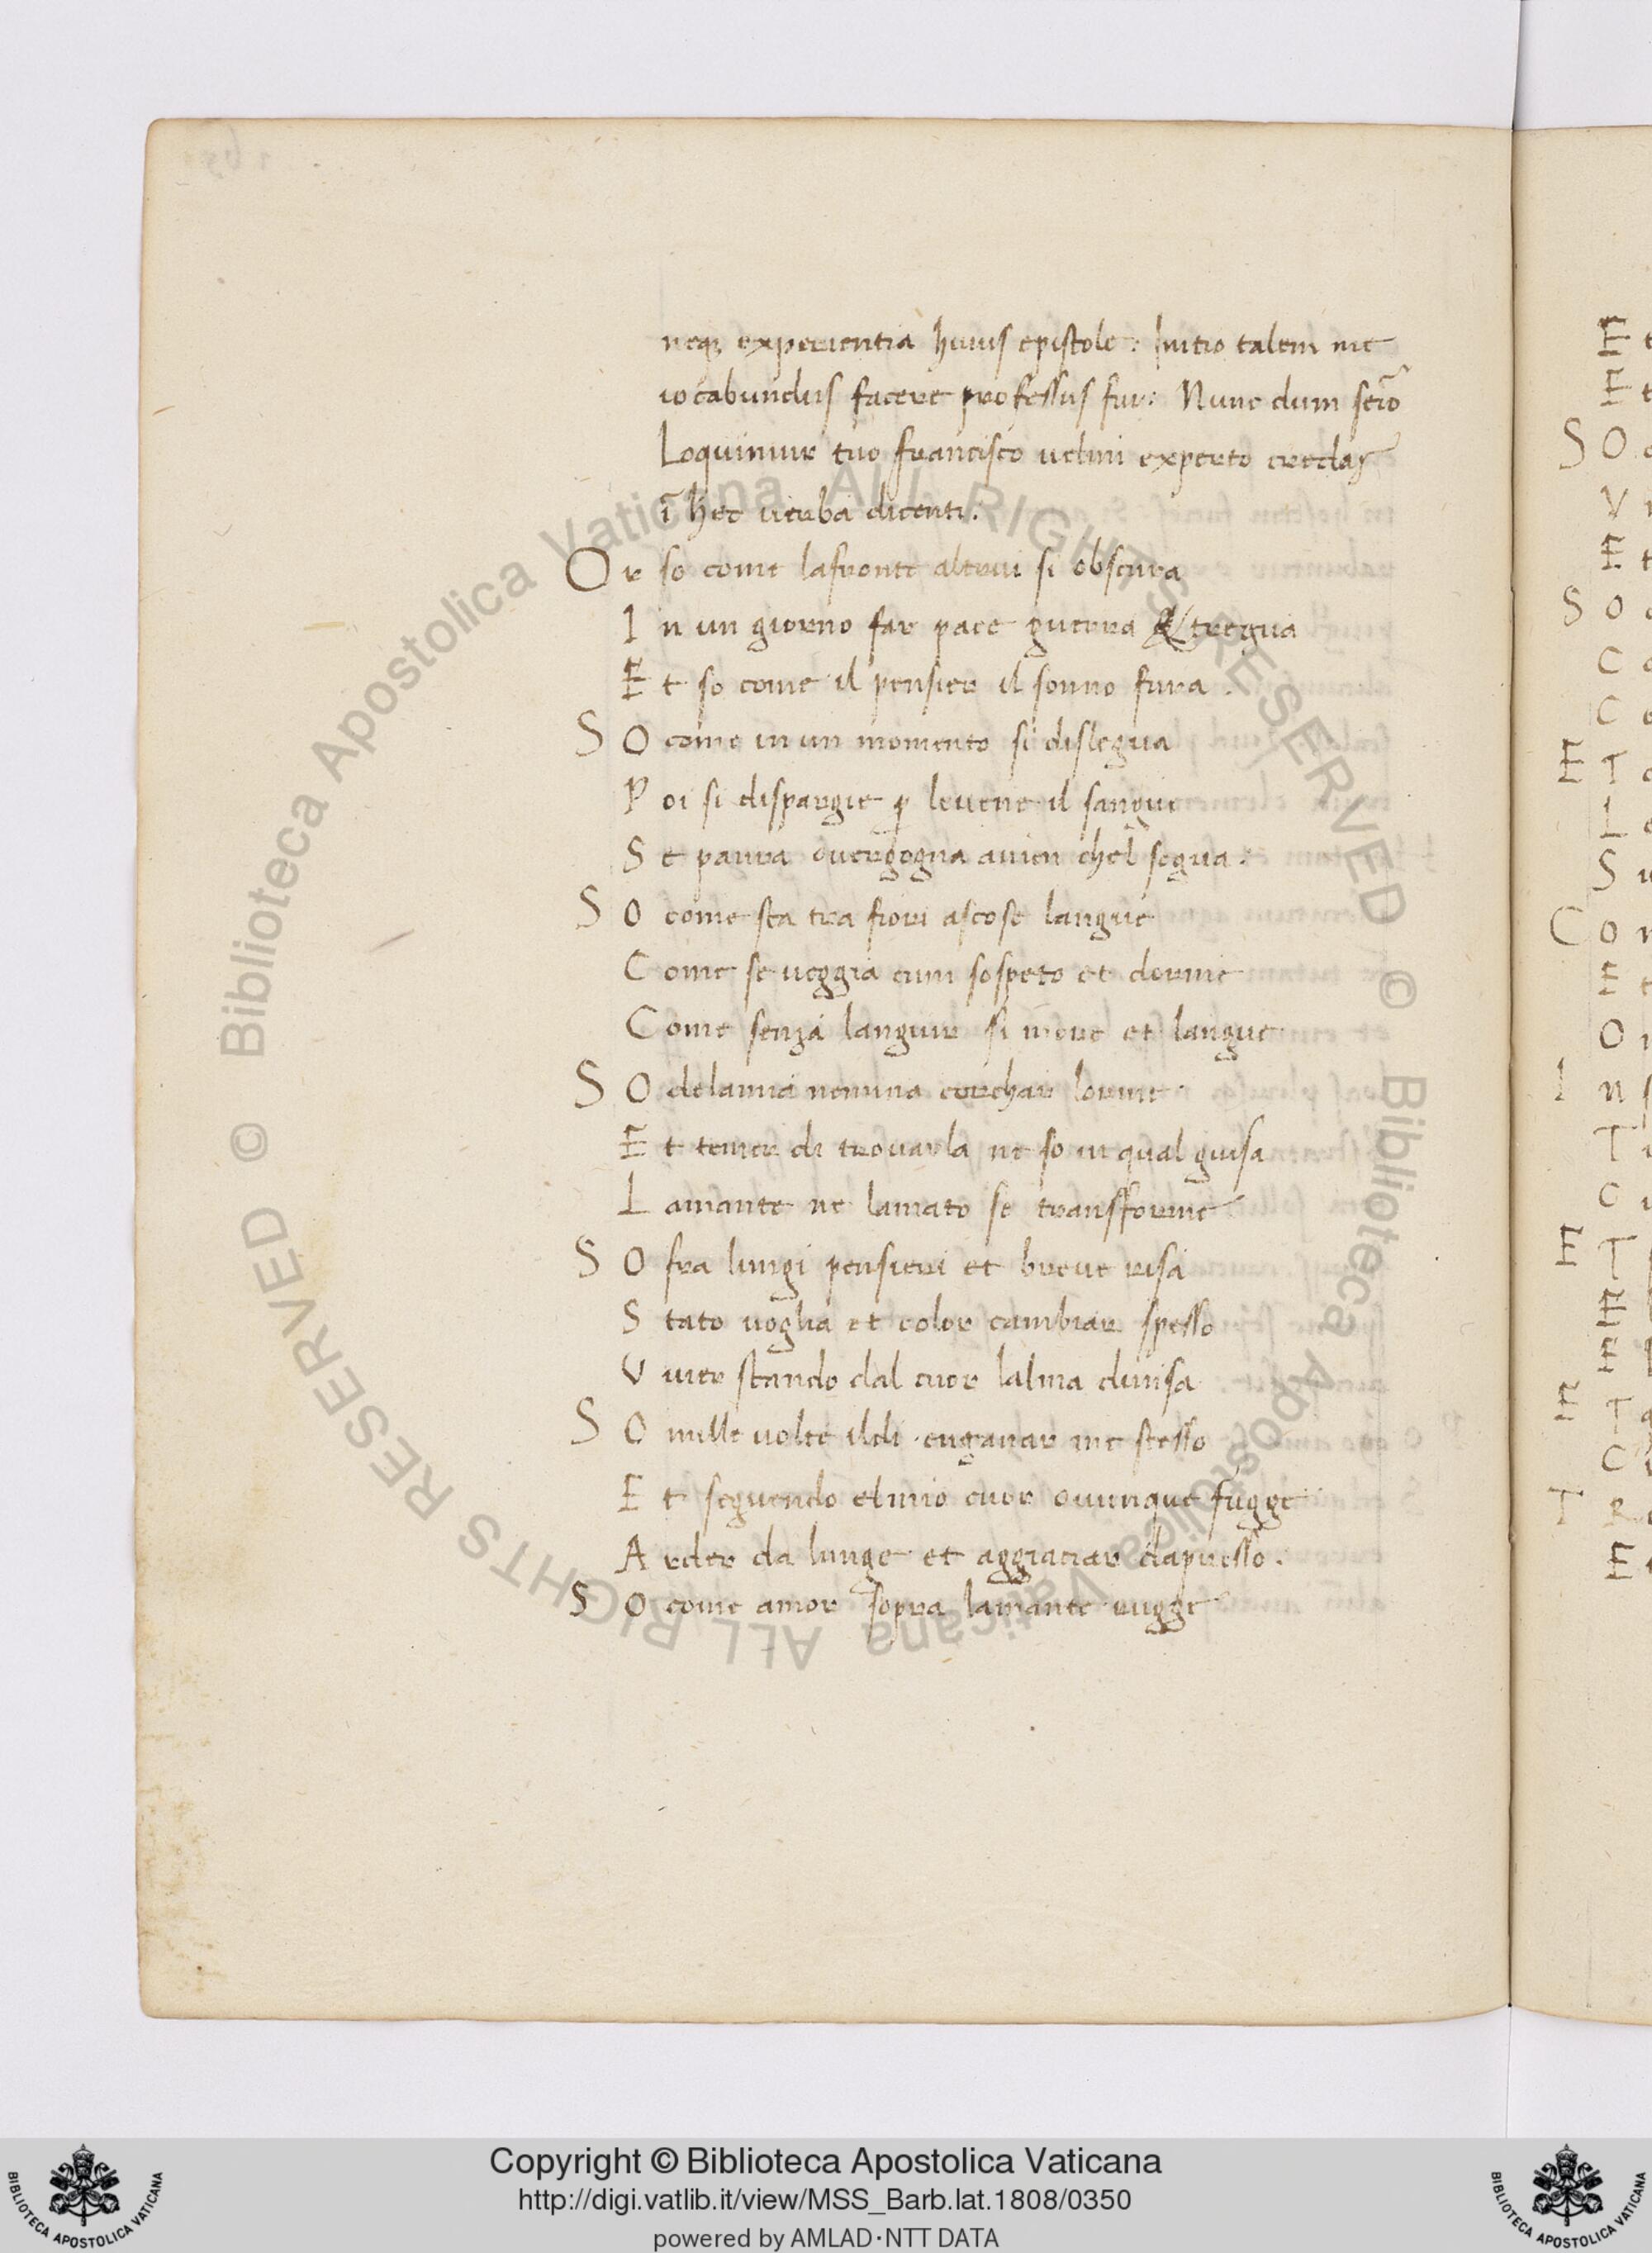 neq; experientia huius epistole: Initio talem me
iocabundus facere professus fui: Nunc dum serio
Loquimur tuo francisco uelim experto credas
ī hec uerba dicenti:
Or so come lafronte altrui si obscura
In un giorno far pace guerra & tregua
Et so come il pensier il sonno fura.
SO come in un momento si dislegua
Poi si dispargie p leuene il sangue
Se paura ouergogna auien chel segua.
SO come sta tra fiori ascose langue
Come se ueggia cum sospeto et dorme
Come senza languir si more et langue
SO delamia nemina cerchar lorme
Et temer di trouarla ne so in qual guisa
Lamante ne lamato se transforme
SO fra lungi pensieri et breue risa
Stato uoglia et color cambiar spesso
Viuer stando dal cuor lalma diuisa
SO mille uolte ildi enganar me stesso
Et seguendo elmio cuor ouunque fugge
Arder da lunge et aggiaciar dapresso.
SO come amor sopra lamante rugge
E
E
SO
V
E
SO
C
C
ET
L
S
Co
E
O
In
T
C
ET
E
E
ET
C
TR
E
© Biblioteca Apostolica Vaticana ALL RIGHTS RESERVED © Biblioteca Apostolica Vaticana ALL RIGHTS RESERVED
Copyright © Biblioteca Apostolica Vaticana
http://digi.vatlib.it/view/MSS_Barb.lat.1808/0350
powered by AMLAD·NTT DATA
BIBLIOTECA APOSTOLICA VATICANA
BIBLIOTECA APOSTOLICA VATICANA